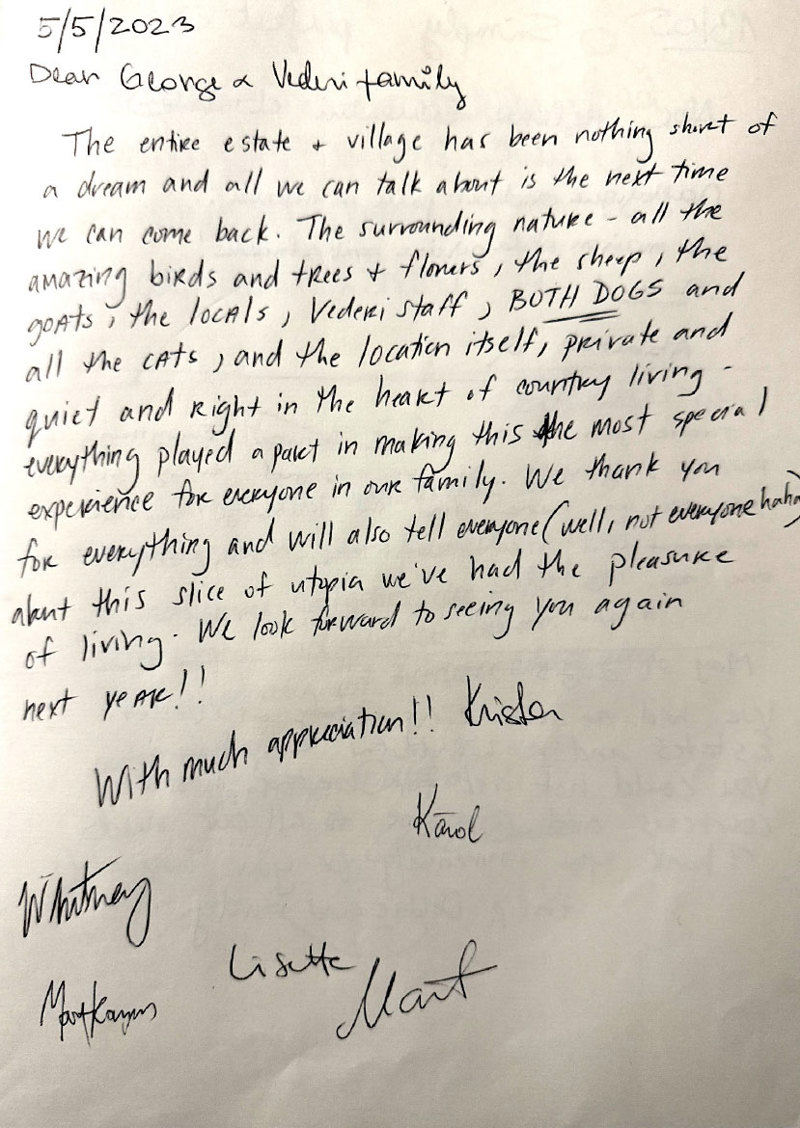 5/5/2023
Dear George & Vederi family
The entire estate + village has been nothing short of
a dream and all we can talk about is the next time
we can come back. The surrounding nature - all the
amazing birds and trees + flowers, the sheep, the
goats, the locals, Vederi staff, BOTH DOGS and
all the cats, and the location itself, private and
quiet and right in the heart of country living -
everything played a part in making this the most special
experience for everyone in our family. We thank you
for everything and will also tell everyone (well, not everyone haha)
about this slice of utopia we've had the pleasure
of living. We look forward to seeing you again
next year!!
With much appreciation!! Kristen
Karol
Whitney
Lisette
Mart